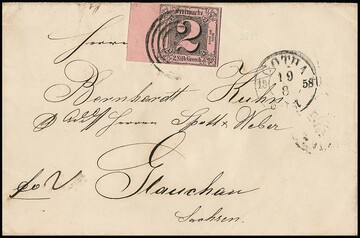 Freimarke
2
2 Silb. Grosch.
GOTHA
19
8
1858
Herrn
Bernhardt Kuhn
Herren Spott & Weber
Glauchau
Sachsen.